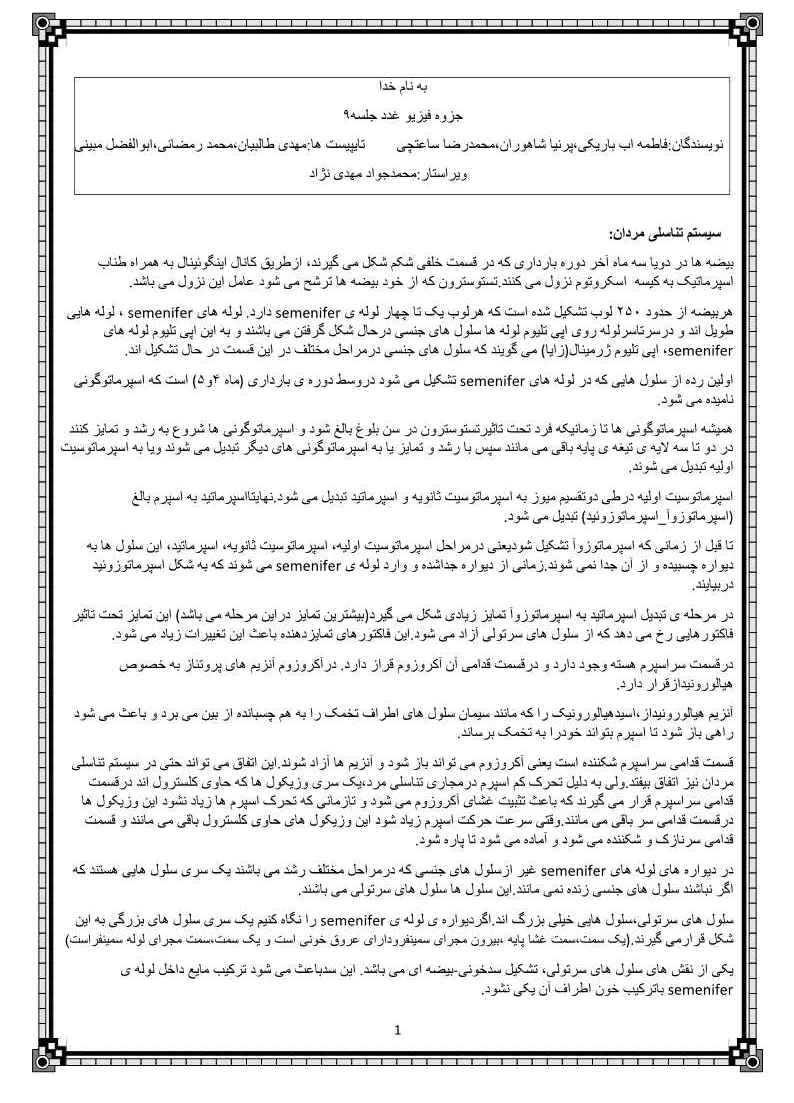 به نام خدا
جزوه فیزیو غدد جلسه۹
نویسندگان:فاطمه اب باریکی،پرنیا شاهوران،محمدرضا ساعتچی تایپیست ها:مهدی طالبیان،محمد رمضانی،ابوالفضل مبینی
ویراستار:محمدجواد مهدی نژاد
سیستم تناسلی مردان:
بیضه ها در دویا سه ماه آخر دوره بارداری که در قسمت خلفی شکم شکل می گیرند، ازطریق کانال اینگوئینال به همراه طناب
اسپرماتیک به کیسه اسکروتوم نزول می کنند.تستوسترون که از خود بیضه ها ترشح می شود عامل این نزول می باشد.
هربیضه از حدود ۲۵۰ لوب تشکیل شده است که هرلوب یک تا چهار لوله ی semenifer دارد. لوله های semenifer ، لوله هایی
طویل اند و درسرتاسرلوله روی اپی تلیوم لوله ها سلول های جنسی درحال شکل گرفتن می باشند و به این اپی تلیوم لوله های
semenifer، اپی تلیوم ژرمینال(زایا) می گویند که سلول های جنسی درمراحل مختلف در این قسمت در حال تشکیل اند.
اولین رده از سلول هایی که در لوله های semenifer تشکیل می شود دروسط دوره ی بارداری (ماه ۴و۵) است که اسپرماتوگونی
نامیده می شود.
همیشه اسپرماتوگونی ها تا زمانیکه فرد تحت تاثیرتستوسترون در سن بلوغ بالغ شود و اسپرماتوگونی ها شروع به رشد و تمایز کنند
در دو تا سه لایه ی تیغه ی پایه باقی می مانند سپس با رشد و تمایز یا به اسپرماتوگونی های دیگر تبدیل می شوند ویا به اسپرماتوسیت
اولیه تبدیل می شوند.
اسپرماتوسیت اولیه درطی دوتقسیم میوز به اسپرماتوسیت ثانویه و اسپرماتید تبدیل می شود.نهایتااسپرماتید به اسپرم بالغ
(اسپرماتوزوآ_اسپرماتوزوئید) تبدیل می شود.
تا قبل از زمانی که اسپرماتوزوآ تشکیل شودیعنی درمراحل اسپرماتوسیت اولیه، اسپرماتوسیت ثانویه، اسپرماتید، این سلول ها به
دیواره چسبیده و از آن جدا نمی شوند.زمانی از دیواره جداشده و وارد لوله ی semenifer می شوند که به شکل اسپرماتوزوئید
دربیایند.
در مرحله ی تبدیل اسپرماتید به اسپرماتوزوآ تمایز زیادی شکل می گیرد(بیشترین تمایز دراین مرحله می باشد) این تمایز تحت تاثیر
فاکتورهایی رخ می دهد که از سلول های سرتولی آزاد می شود.این فاکتورهای تمایزدهنده باعث این تغییرات زیاد می شود.
درقسمت سراسپرم هسته وجود دارد و درقسمت قدامی آن آکروزوم قراز دارد. درآکروزوم آنزیم های پروتئاز به خصوص
هیالورونیدازقرار دارد.
آنزیم هیالورونیداز،اسیدهیالورونیک را که مانند سیمان سلول های اطراف تخمک را به هم چسبانده از بین می برد و باعث می شود
راهی باز شود تا اسپرم بتواند خودرا به تخمک برساند.
قسمت قدامی سراسپرم شکننده است یعنی آکروزوم می تواند باز شود و آنزیم ها آزاد شوند.این اتفاق می تواند حتی در سیستم تناسلی
مردان نیز اتفاق بیفتد.ولی به دلیل تحرک کم اسپرم درمجاری تناسلی مرد،یک سری وزیکول ها که حاوی کلسترول اند درقسمت
قدامی سراسپرم قرار می گیرند که باعث تثبیت غشای آکروزوم می شود و تازمانی که تحرک اسپرم ها زیاد نشود این وزیکول ها
درقسمت قدامی سر باقی می مانند.وقتی سرعت حرکت اسپرم زیاد شود این وزیکول های حاوی کلسترول باقی می مانند و قسمت
قدامی سرنازک و شکننده می شود و آماده می شود تا پاره شود.
در دیواره های لوله های semenifer غیر ازسلول های جنسی که درمراحل مختلف رشد می باشند یک سری سلول هایی هستند که
اگر نباشند سلول های جنسی زنده نمی مانند.این سلول ها سلول های سرتولی می باشند.
سلول های سرتولی،سلول هایی خیلی بزرگ اند.اگردیواره ی لوله ی semenifer را نگاه کنیم یک سری سلول های بزرگی به این
شکل قرارمی گیرند.(یک سمت،سمت غشا پایه ،بیرون مجرای سمینفرودارای عروق خونی است و یک سمت،سمت مجرای لوله سمینفراست)
یکی از نقش های سلول های سرتولی، تشکیل سدخونی-بیضه ای می باشد. این سدباعث می شود ترکیب مایع داخل لوله ی
semenifer باترکیب خون اطراف آن یکی نشود.
1